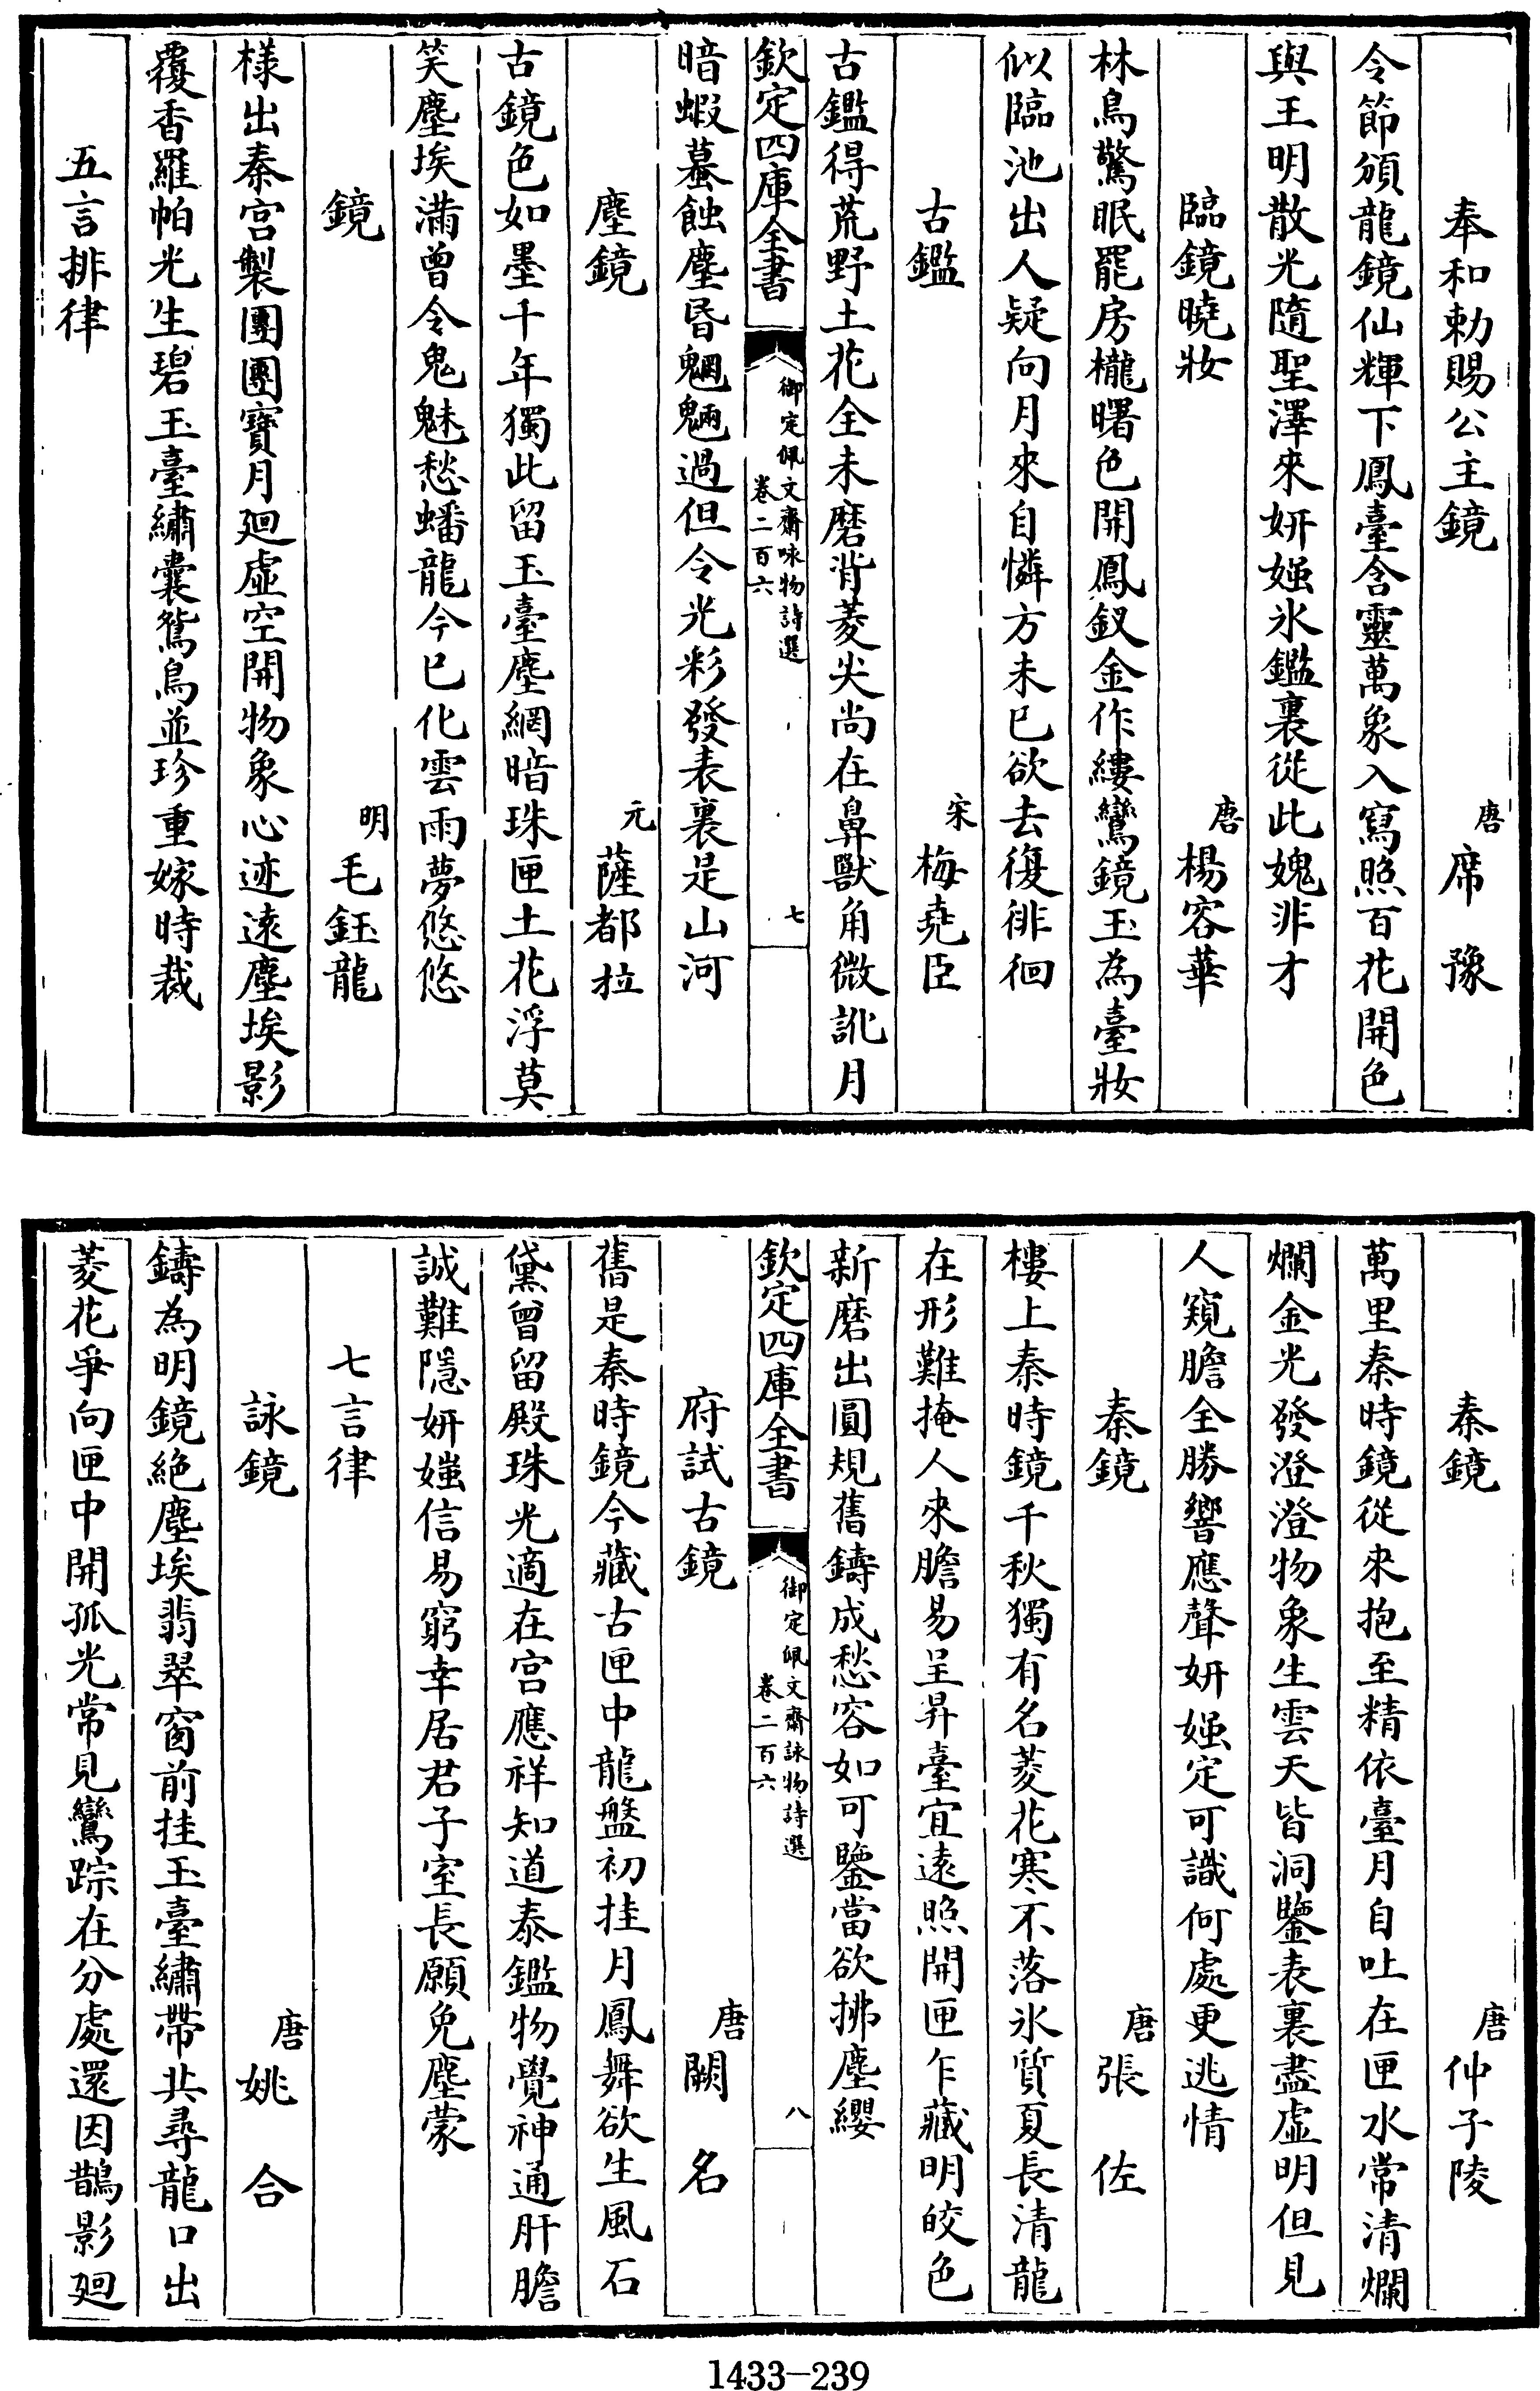 奉和勅賜公主鏡 唐 席豫
令節頒龍鏡仙輝下鳳臺含靈萬象入寫照百花開色
與王明散光隨聖澤來妍媸氷鑑裏從此媿非才
臨鏡曉妝 唐 楊容華
林鳥驚眠罷房櫳曙色開鳳釵金作縷鸞鏡玉為臺妝
似臨池出人疑向月來自憐方未已欲去復徘徊
古鑑 宋 梅堯臣
古鑑得荒野土花全未磨背菱尖尚在鼻獸角微訛月
欽定四庫全書
御定佩文齋咏物詩選
卷二百六
七
暗蝦蟇蝕塵昏魍魎過但令光彩發表裏是山河
塵鏡 元 薩都拉
古鏡色如墨千年獨此留玉臺塵網暗珠匣土花浮莫
笑塵埃滿曾令鬼魅愁蟠龍今已化雲雨夢悠悠
鏡 明 毛鈺龍
様出秦宫製團團寶月廻虛空開物象心迹逺塵埃影
覆香羅帕光生碧玉臺繡囊鴛鳥並珍重嫁時裁
五言排律
秦鏡 唐 仲子陵
萬里秦時鏡從來抱至精依臺月自吐在匣水常清爛
爛金光發澄澄物象生雲天皆洞鑒表裏盡虛明但見
人窺膽全勝響應聲妍媸定可識何處更逃情
秦鏡 唐 張佐
樓上秦時鏡千秋獨有名菱花寒不落氷質夏長清龍
在形難掩人來膽易呈昇臺宜逺照開匣乍藏明皎色
新磨出圓規舊鑄成愁容如可鑒當欲拂塵纓
欽定四庫全書
御定佩文齋詠物詩選
卷二百六
八
府試古鏡 唐 闕名
舊是秦時鏡今藏古匣中龍盤初挂月鳳舞欲生風石
黛曾留殿珠光適在宫應祥知道泰鑑物覺神通肝膽
誠難隱妍媸信易窮幸居君子室長願免塵蒙
七言律
詠鏡 唐 姚合
鑄為明鏡絶塵埃翡翠窗前挂玉臺繡帶共尋龍口出
菱花爭向匣中開孤光常見鸞踪在分處還因鵲影廻
1433-239